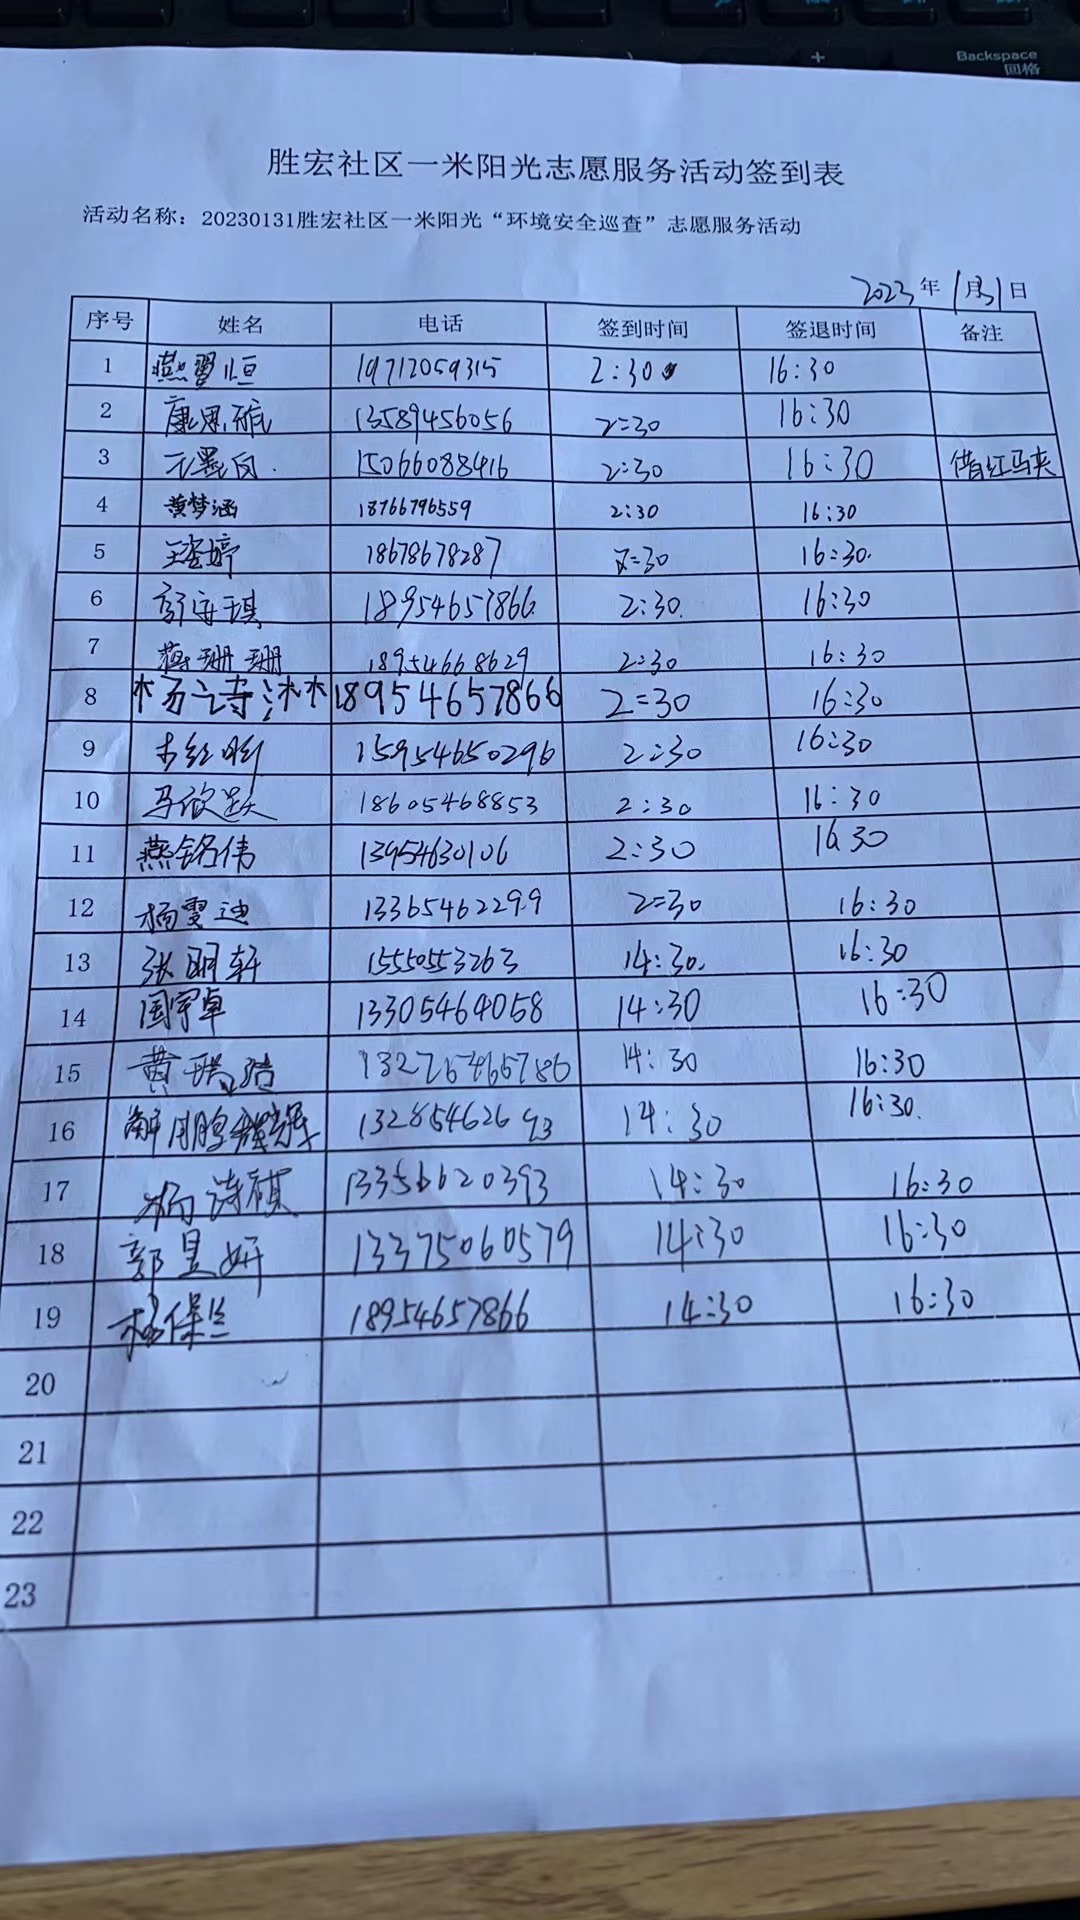 Backspace
回格
胜宏社区一米阳光志愿服务活动签到表
活动名称：20230131胜宏社区一米阳光“环境安全巡查”志愿服务活动
2023年1月31日
序号 姓名 电话 签到时间 签退时间 备注
1 19712059315 2:30 16:30
2 康思 13589456056 2:30 16:30
3 15066088416 2:30 16:30 借红马夹
4 黄梦涵 18766796559 2:30 16:30
5 王 婷 18678678287 2:30 16:30
6 18954657866 2:30 16:30
7 蒋珊珊 18954668629 2:30 16:30
8 杨诗淋 18954657866 2:30 16:30
9 15954650296 2:30 16:30
10 马欣跃 18605468853 2:30 16:30
11 燕铭伟 13954630106 2:30 16:30
12 杨雯迪 13365462299 2:30 16:30
13 张明轩 15550553263 14:30 16:30
14 国宇卓 13305464058 14:30 16:30
15 黄瑞 14:30 16:30
16 解 13285462693 14:30 16:30
17 杨诗祺 13356620393 14:30 16:30
18 郭昱妍 13375060579 14:30 16:30
19 杨保兰 18954657866 14:30 16:30
20
21
22
23